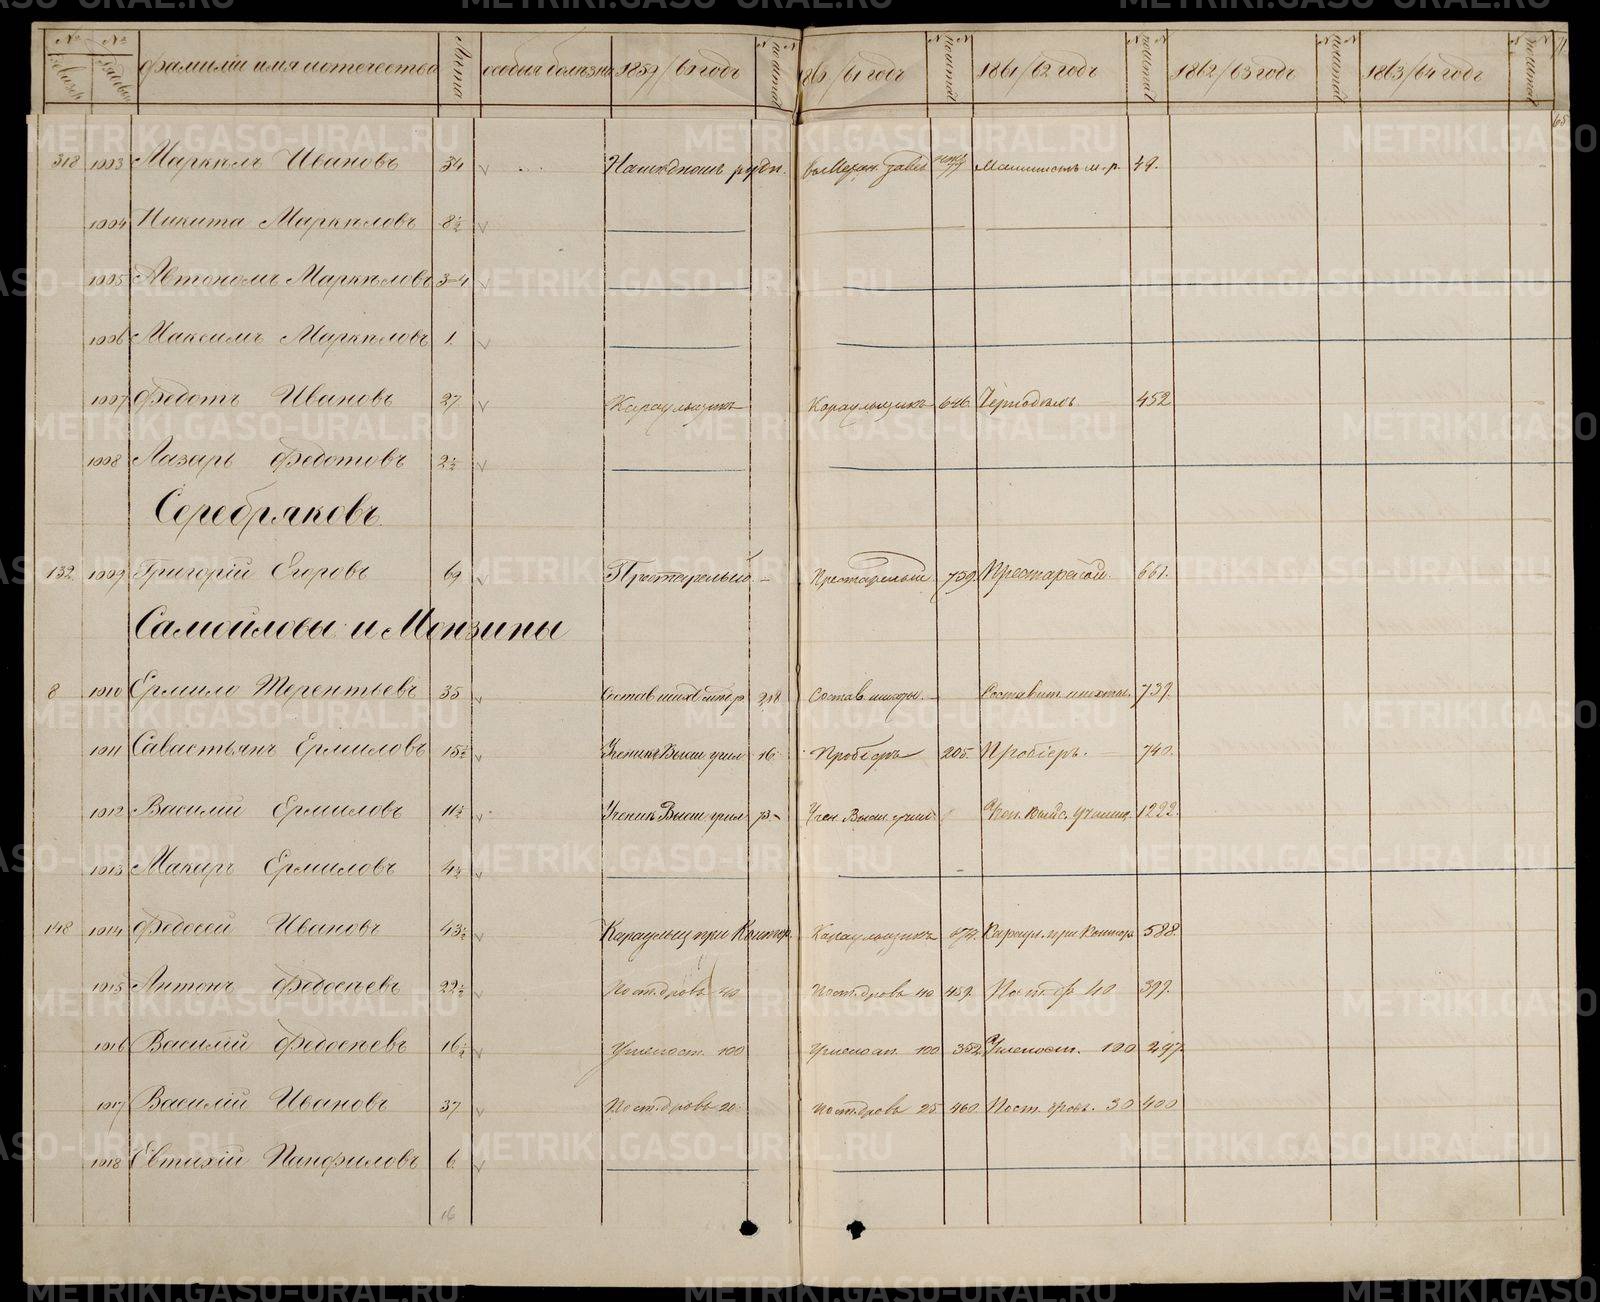 № № фамилiи имя и отечество Лѣта особыя болѣзни 1859/60 годъ 1860/61 годъ 1861/62 годъ 1862/63 годъ 1863/64 годъ
318 1003 Маркелъ Ивановъ 34 рудн. Машинистъ 49.
1004 Никита Маркеловъ 8½
1005 Автономъ Маркеловъ 3-4
1006 Максимъ Маркеловъ 1.
1007 Федотъ Ивановъ 27 Караульщикъ Караульщикъ 646. 452
1008 Лазарь Федотовъ 2½
Серебряковъ.
132 1009 Григорiй Егоровъ 69 Престарелый Престарелый 759. Престарелой. 661.
Самойловы и Мензины
8 1010 Ермило Терентьевъ 35 Состав. шихты 218 Состав. шихты. Составит. шихты. 739.
1011 Савастьянъ Ермиловъ 15½ Ученикъ Высш. учил 16. Пробiеръ 205. Пробiеръ. 740.
1012 Василiй Ермиловъ 11½ Ученикъ Высш. учил 73. Учен. Высш. учил Учен. Высс. Училищ. 1222.
1013 Макаръ Ермиловъ 4½
148 1014 Федосей Ивановъ 43½ Караульщ при Контор. Караульщикъ 674. Караул. при Конторе 588.
1015 Антонъ Федосеевъ 22½ Пост. дровъ 40 Пост. дровъ 40 459. Пост. др 40 399.
1016 Василiй Федосеевъ 16½ Углепост. 100 Углепост. 100 352 Углепост. 100 297.
1017 Василiй Ивановъ 37 Пост. дровъ 20. Пост. дровъ 25 460. Пост. дров. 30 400
1018 Евтихiй Панфиловъ 6
16
METRIKI.GASO-URAL.RU